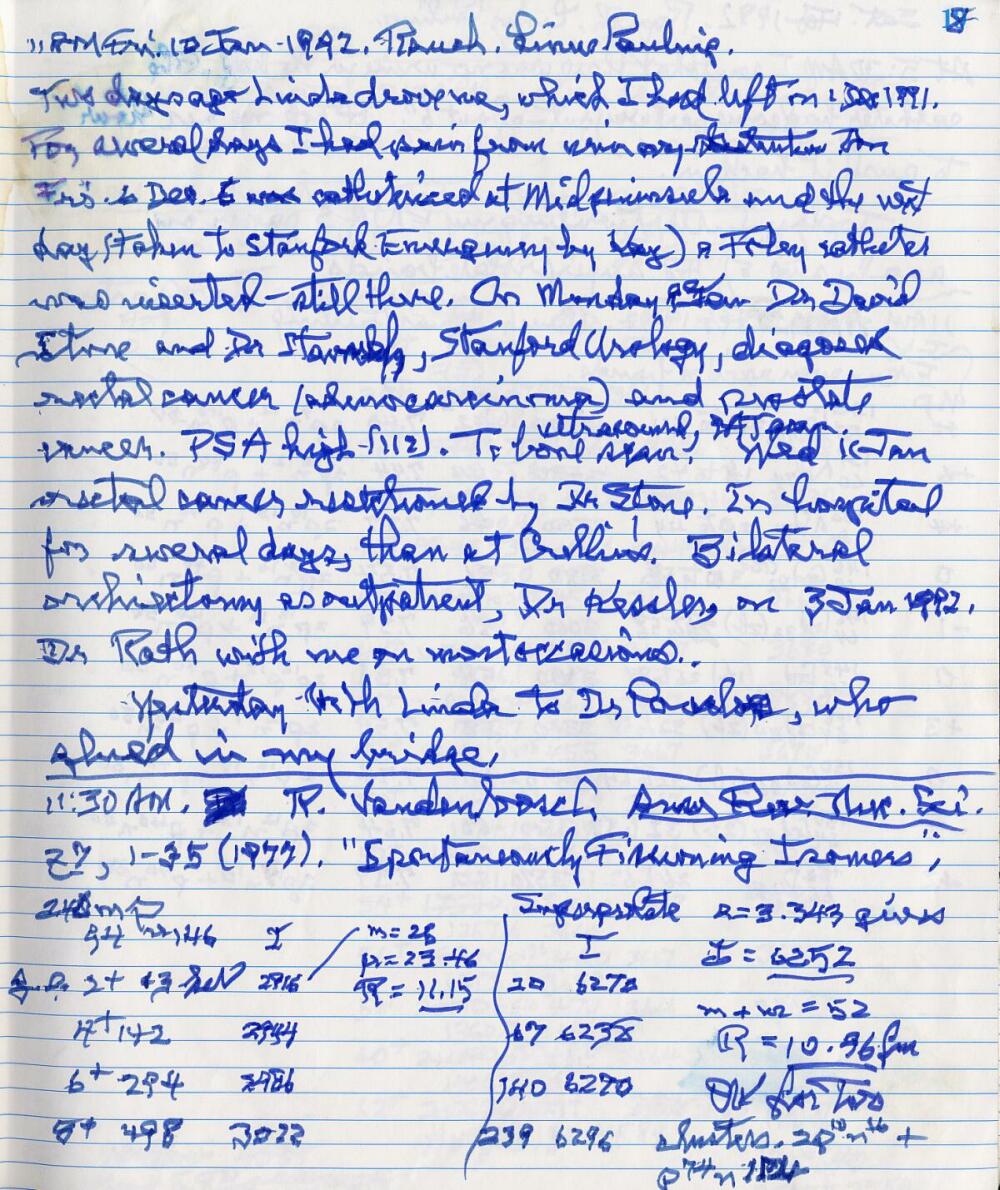 11 AM Fri. 10 Jan. 1992. Ranch. Linus Pauling.
Two days ago Linda drove me, which I had left on 1 Dec 1991.
For several days I had pain from urinary On
Fri. 6 Dec. I was catheterized at Midpeninsula and the next
day (taken to Stanford Emergency by Kay) a Foley catheter
was inserted - still there. On Monday 9 Dr David
Stone and Dr Stanford Urology, diagnosed
rectal cancer (adenocarcinoma) and prostate
ultrasound,
cancer. PSA high (112). Tc bone scan. Wed Jan
rectal cancer resectioned by Dr Stone. In hospital
for several days, then at Crellin's. Bilateral
orchiectomy as outpatient, Dr Kessler, on 3 Jan 1992.
Dr Rath with me on most occasions.
Yesterday with Linda to Dr who
glued in my bridge.
11:30 AM. R. Vandenbosch, Ann Rev Nuc. Sci.
27, 1-35 (1977). "Spontaneously Fissioning Isomers",
Incorporate R=3.343 gives
94 146 I m=28 I I = 6252
2+ 43 keV 2916 R = 11.15 20 6270
m + m2 = 52
4+ 142 2944 67 6238
R = 10.96 fm
6+ 294 2986 140 6270
OK for two
8+ 498 3022 239 6296 clusters.